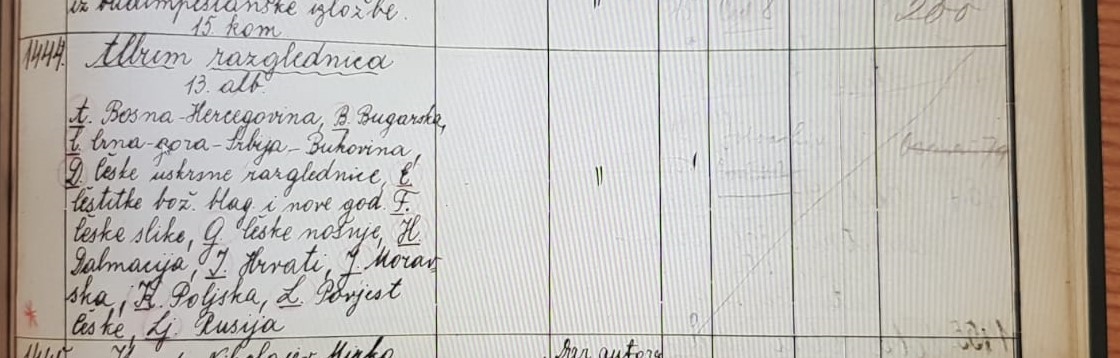 iz budimpeštanske izložbe.
15 kom
200
1444. Album razglednica
13. alb.
A. Bosna-Hercegovina, B. Bugarska,
C. Crna-gora-Srbija-Bukovina,
D. Češke uskrsne razglednice, E.
Čestitke bož. blag. i nove god. F.
Češke slike, G. Češke nošnje, H.
Dalmacija, I. Hrvati, J. Morav
ska, K. Poljska, L. Povjest
Češke, Lj. Rusija
Mirko
autora